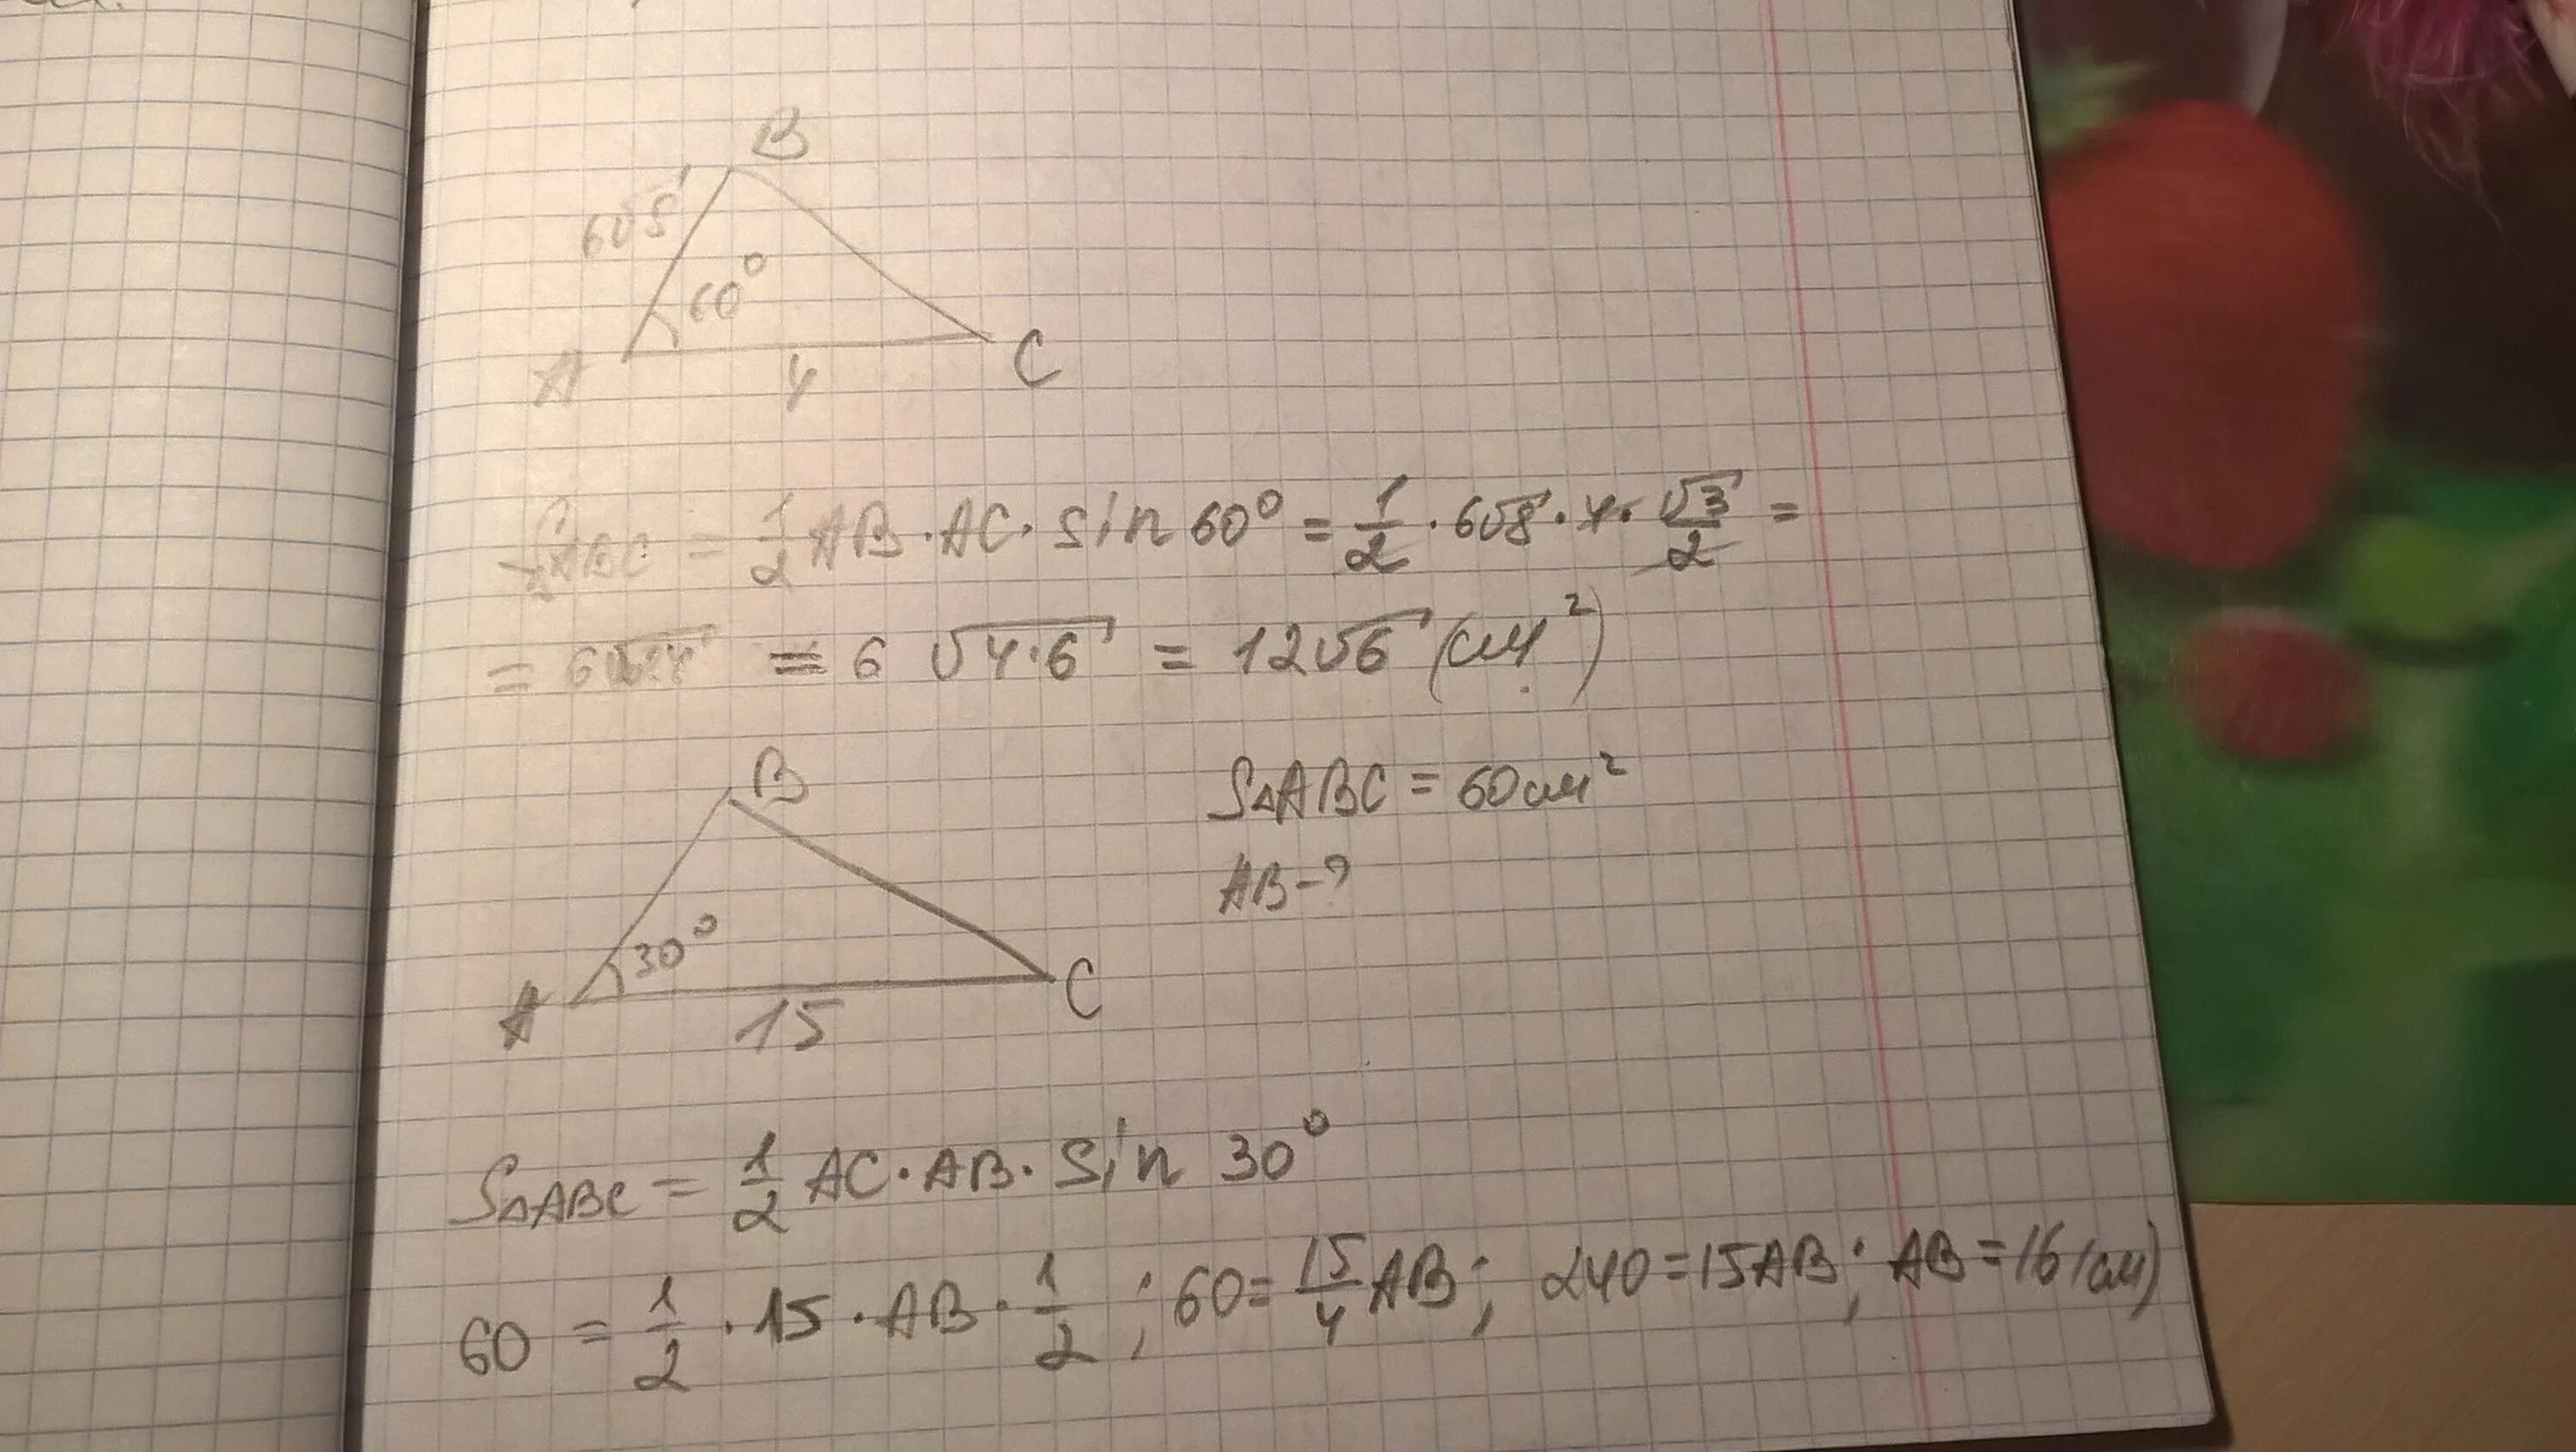 B
6√8
60°
A
4
C
S△ABC = 1/2 AB · AC · sin 60° = 1/2 · 6√8 · 4 · √3/2 =
= 6 √4·6 = 12√6 (см²)
B
S△ABC = 60 см²
AB - ?
30°
A
15
C
S△ABC = 1/2 AC · AB · sin 30°
60 = 1/2 · 15 · AB · 1/2 ; 60 = 15/4 AB ; 240 = 15AB ; AB = 16 (см)